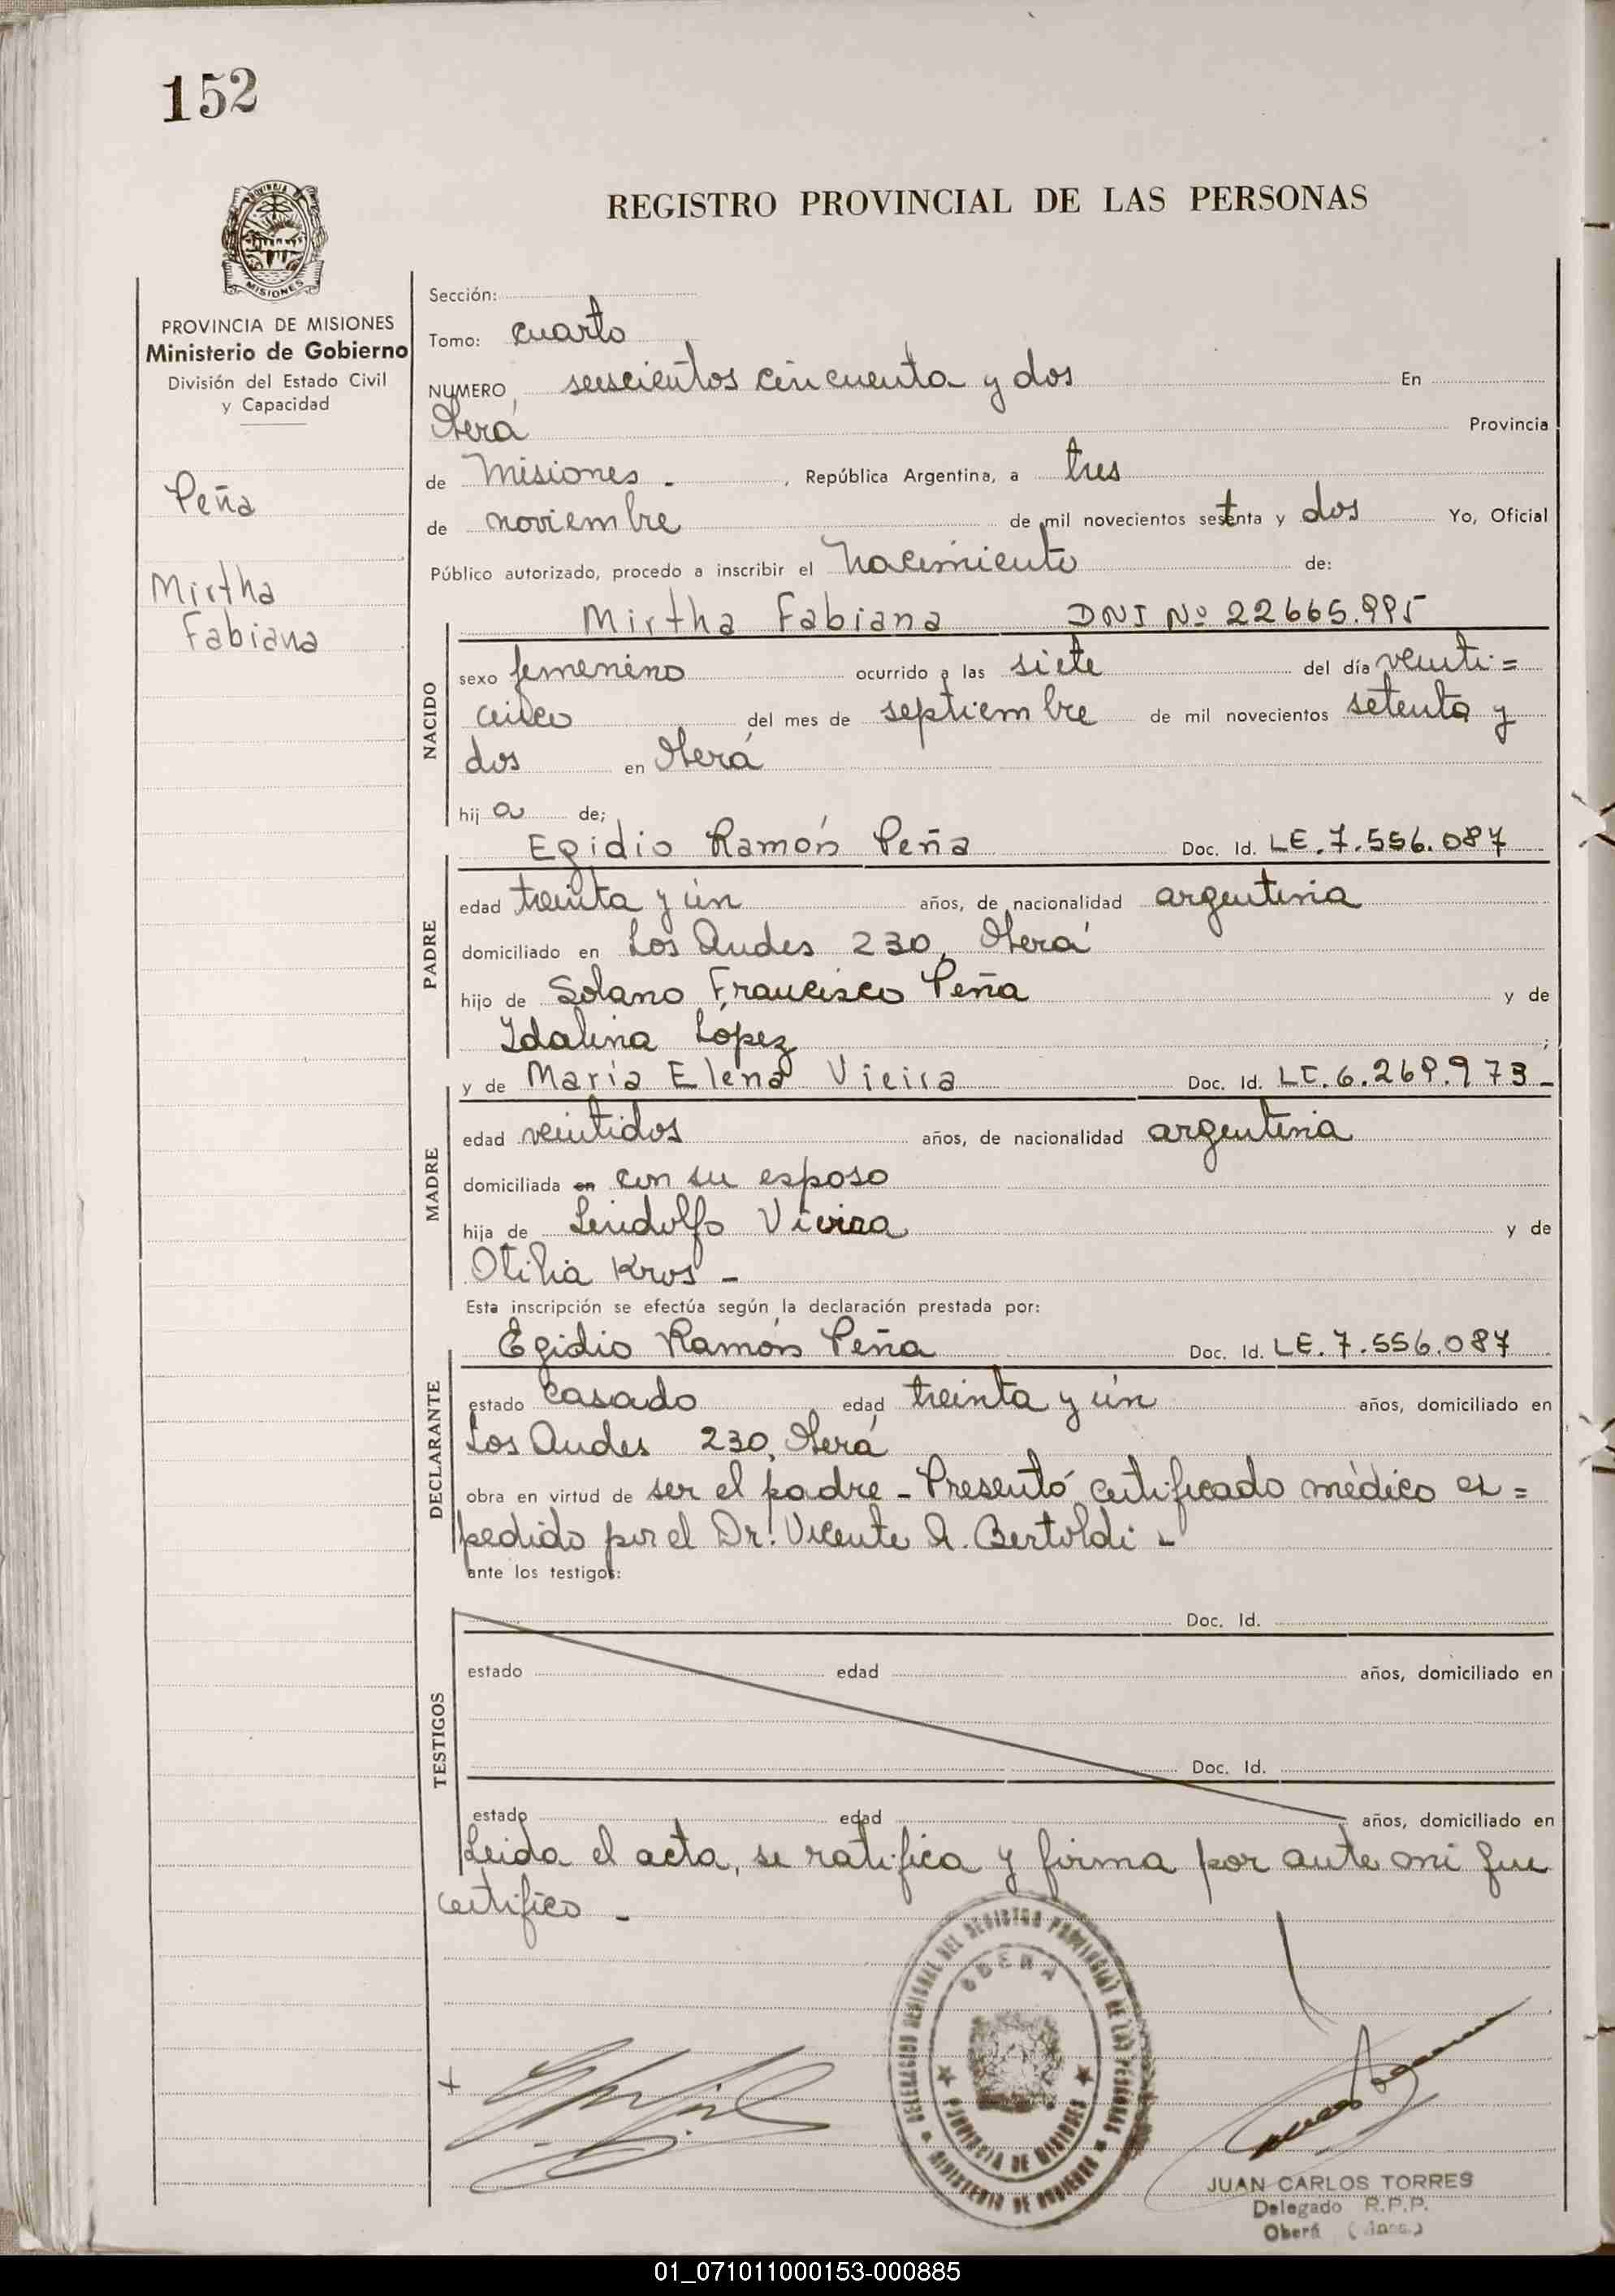 152
PROVINCIA DE MISIONES
Ministerio de Gobierno
División del Estado Civil
y Capacidad
Peña
Mirtha
Fabiana
REGISTRO PROVINCIAL DE LAS PERSONAS
Sección:
Tomo: cuarto
NUMERO seiscientos cincuenta y dos En
Oberá Provincia
de Misiones - , República Argentina, a tres
de noviembre de mil novecientos setenta y dos Yo, Oficial
Público autorizado, procedo a inscribir el Nacimiento de:
NACIDO
Mirtha Fabiana DNI Nº 22665.995
sexo femenino ocurrido a las siete del día veinti=
cinco del mes de septiembre de mil novecientos setenta y
dos en Oberá
hij a de;
PADRE
Egidio Ramón Peña Doc. Id. LE. 7.556.087
edad treinta y ún años, de nacionalidad argentina
domiciliado en Los Andes 230, Oberá
hijo de Solano Francisco Peña y de
Idalina López ;
MADRE
y de María Elena Vieira Doc. Id. LC. 6.269.973-
edad veintidos años, de nacionalidad argentina
domiciliada en con su esposo
hija de Lindolfo Vieira y de
Otilia Kros -
Esta inscripción se efectúa según la declaración prestada por:
DECLARANTE
Egidio Ramón Peña Doc. Id. LE. 7.556.087
estado casado edad treinta y ún años, domiciliado en
Los Andes 230, Oberá
obra en virtud de ser el padre - Presentó certificado médico ex=
pedido por el Dr. Vicente A. Bertoldi -
ante los testigos:
TESTIGOS
Doc. Id.
estado edad años, domiciliado en
Doc. Id.
estado edad años, domiciliado en
Leida el acta, se ratifica y firma por ante mi que
certifico -
DELEGACION REGIONAL DEL REGISTRO PROVINCIAL DE LAS PERSONAS
OBERA
PROVINCIA DE MISIONES
MINISTERIO DE GOBIERNO
JUAN CARLOS TORRES
Delegado R.P.P.
Oberá (Mnes.)
01_071011000153-000885